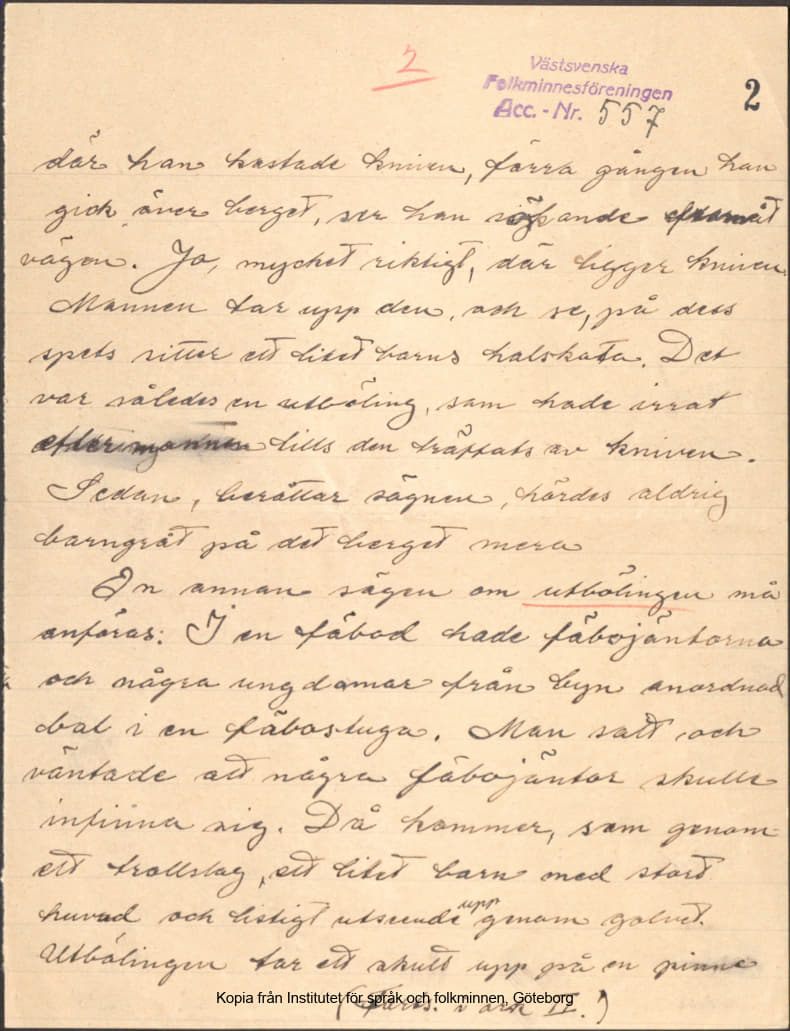 2
Västsvenska
Folkminnesföreningen
Acc. - Nr. 557
2
där han kastade kniven, förra gången han
gick över berget, ser han sökande eftermåt
vägen. Jo, mycket riktigt, där ligger kniven.
Mannen tar upp den, och se, på dess
spets sitter ett litet barns halskota. Det
var således en utböling, som hade irrat
efter mannen tills den träffats av kniven.
Sedan, berättar sägnen, hördes aldrig
barngråt på det berget mera
En annan sägen om utbölingen må
anföras: I en fäbod hade fäbojäntorna
och några ungdomar från byn anordnad
bal i en fäbostuga. Man satt och
väntade att några fäbojäntor skulle
infinna sig. Då kommer, som genom
ett trollslag, ett litet barn med stort
huvud och listigt utseende upp genom golvet.
Utbölingen tar ett skutt upp på en pinne
(Forts. i ark II.)
Kopia från Institutet för språk och folkminnen, Göteborg